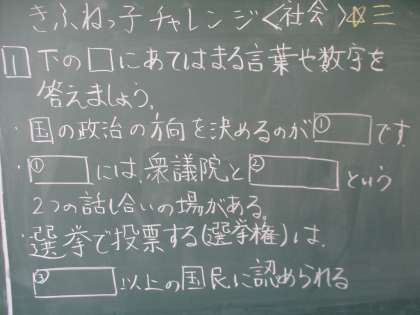 きふねっ子チャレンジ<社会>☆三
1 下の□にあてはまる言葉や数字を
答えましょう。
・国の政治の方向を決めるのが①です。
・①には、衆議院と②という
2つの話し合いの場がある。
・選挙で投票する(選挙権)は、
③以上の国民に認められる